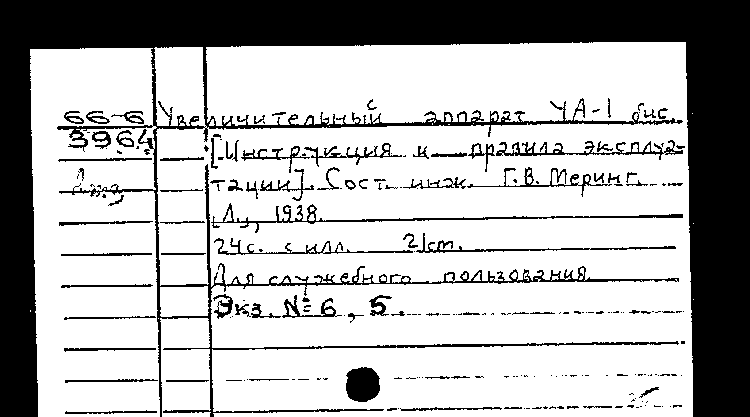 66-6 Увеличительный аппарат УА-1 бис.
3964 [Инструкция и правила эксплуа-
тации]. Сост. инж. Г.В. Меринг.
Л., 1938.
24с. с илл. 21см.
Для служебного пользования.
Экз. № 6, 5.